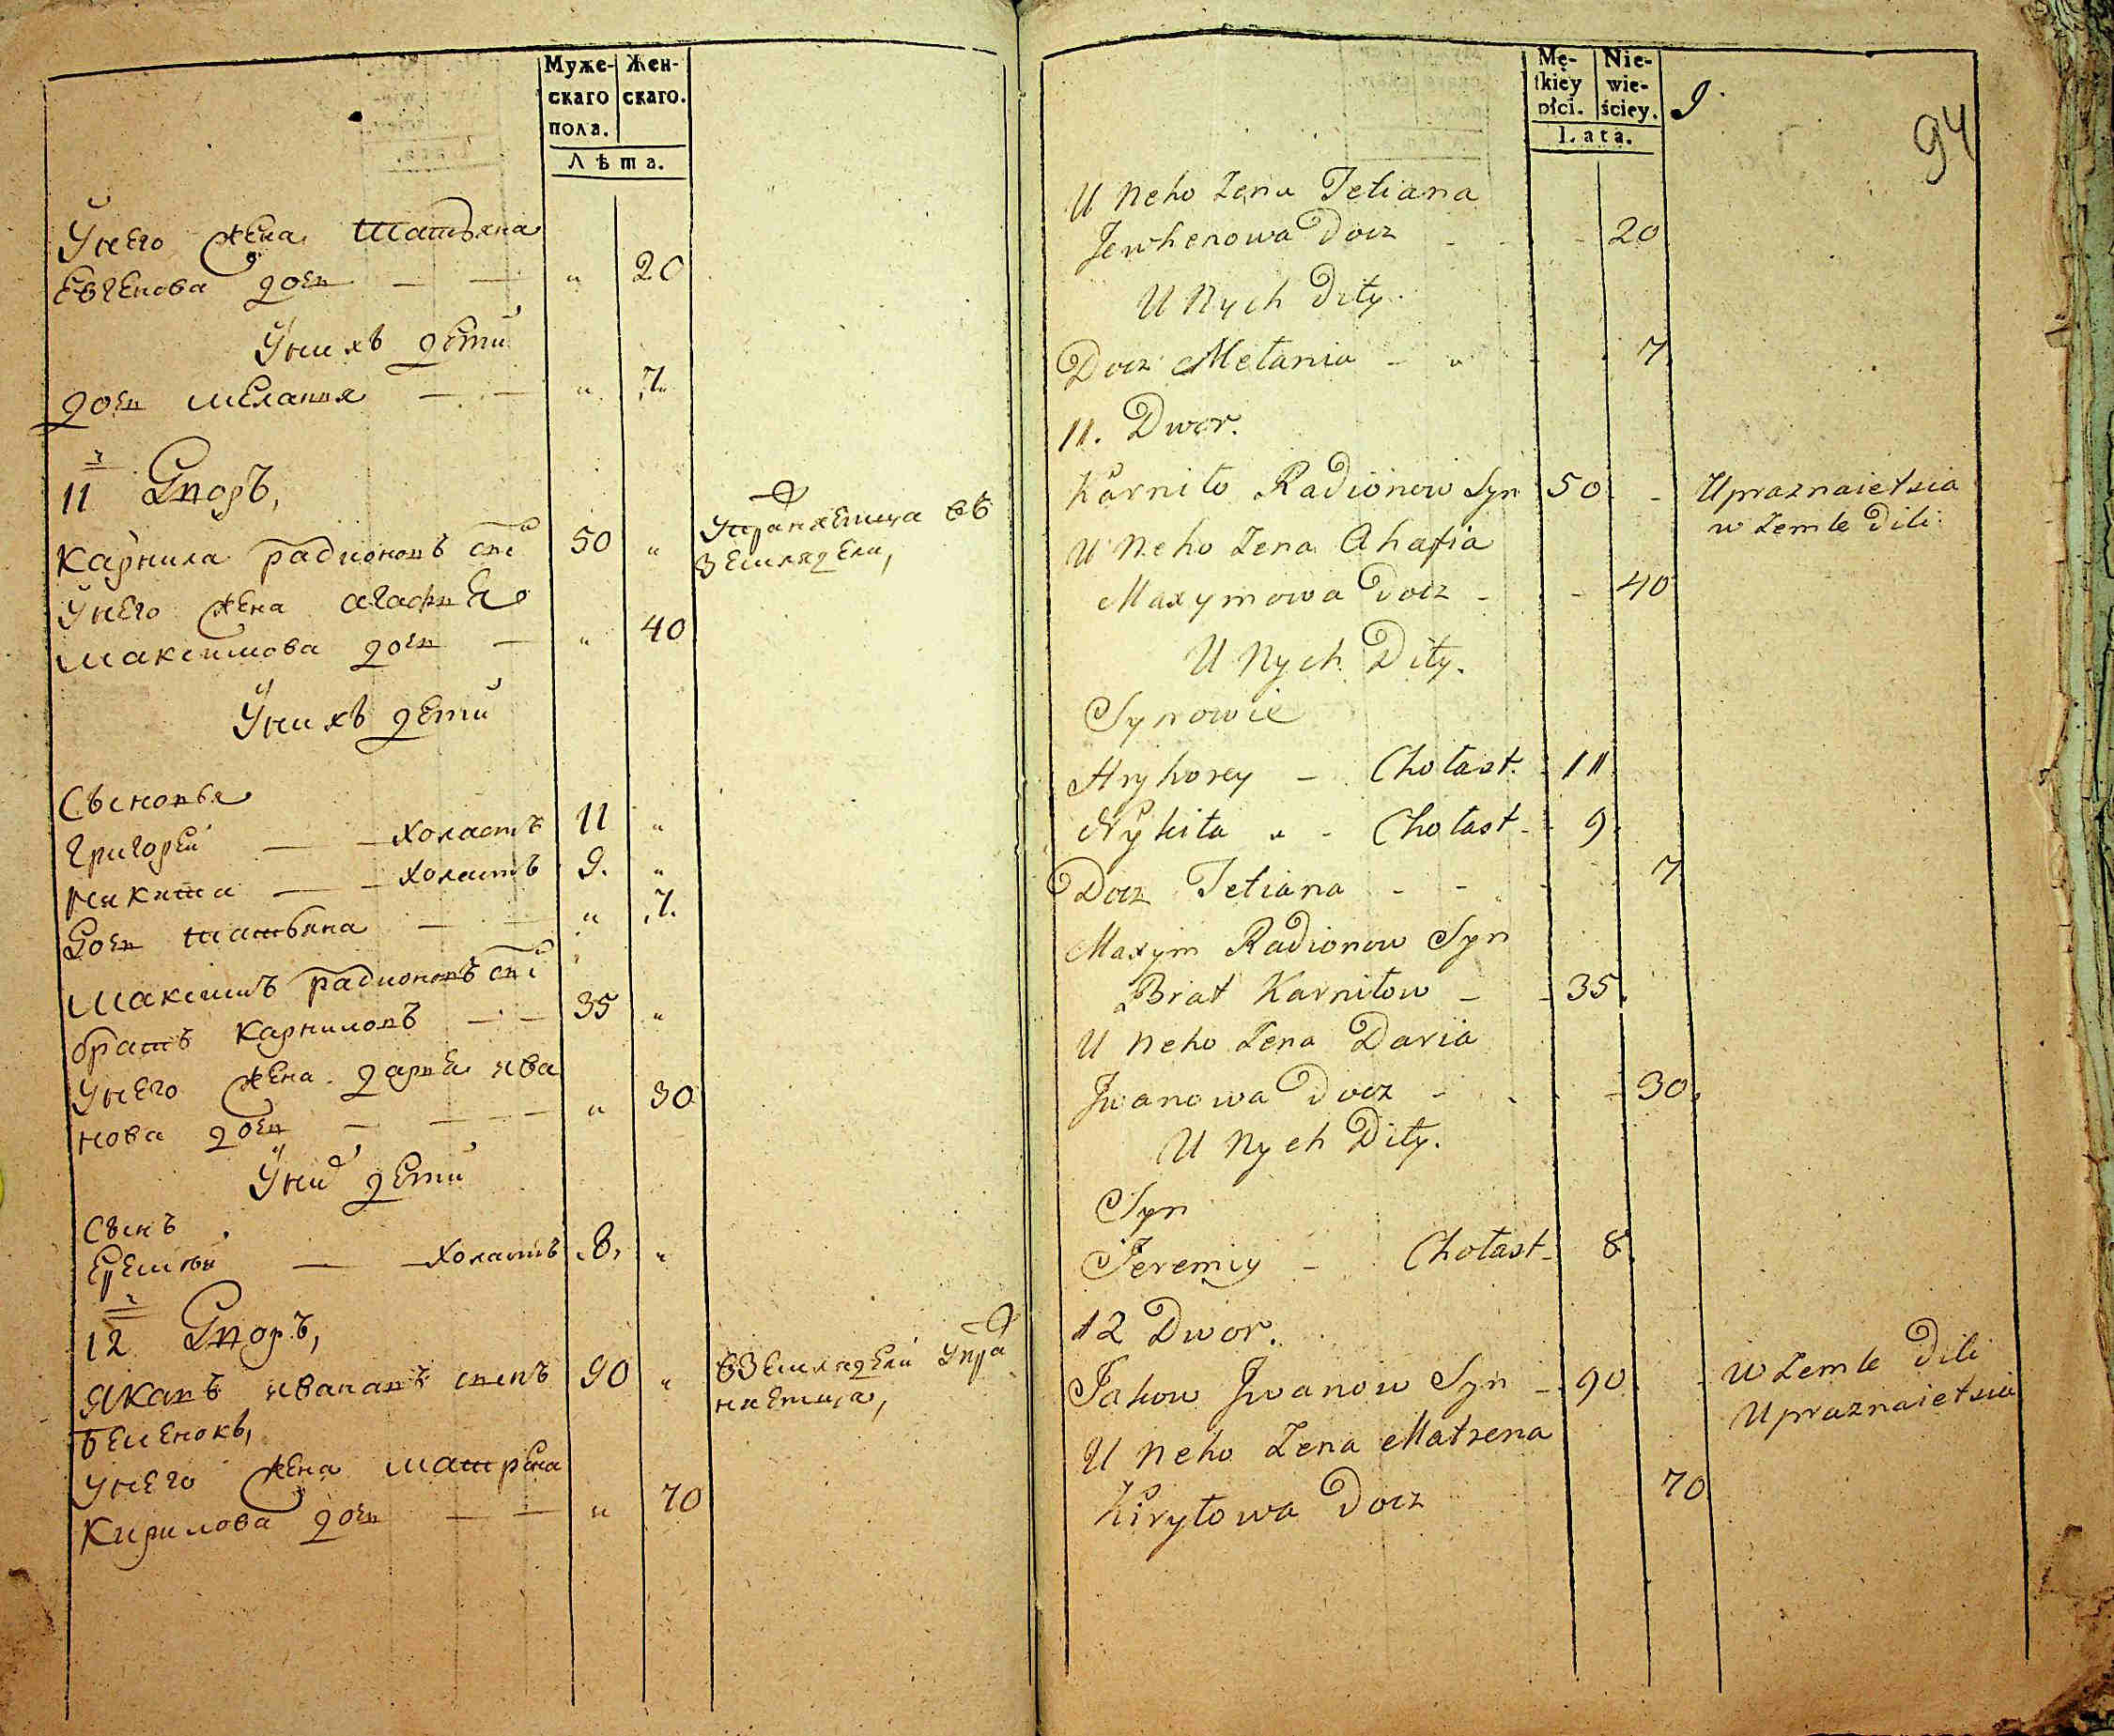 Муже- Жен-
скаго скаго.
пола.
Лѣта.
У него жена татьяна
Евгенова дочь — — " 20
У нихъ дети
дочь мелания — — " 7.
11 Дворъ,
Карнила радионовъ снъ 50 " Упражняетца въ
земляделии,
У него жена агафия
максимова дочь — " 40
У нихъ дети
Сыновья
григорей — — холастъ 11 "
никита — — холастъ 9. "
Дочь татьяна — — " 7.
максимъ радионовъ снъ
братъ карниловъ — — 35 "
У него жена дарья ива
нова дочь — — — " 30
У них дети
Сынъ
Еремѣй — — холастъ 8. "
12 Дворъ,
Яковъ ивановъ сынъ 90 " в земляделии упра
няетца,
У него жена матрена
кирилова дочь — — " 70
Mę- Nie-
skiey wie-
płci. ściey. 9.
Lata.
94
U Neho Zena Tetiana
Jewhenowa Docz - - - 20
U Nych Dity.
Docz Mełania - " - 7
11. Dwor.
Karniło Radionow Syn 50 - Upraznaietsia
w Zemle Dili.
U Neho Zena Ahafia
Maxymowa Docz - - 40
U Nych Dity.
Synowie
Hryhorey - Chołast. 11
Nykita " - Chołast - 9.
Docz Tetiana - - - 7
Maxym Radionow Syn
Brat Karniłow - - 35.
U Neho Zena Daria
Jwanowa Docz - - - 30.
U Nych Dity.
Syn
Jeremiy - Chołast - 8.
12 Dwor.
Jakow Jwanow Syn - 90 - W Zemle Dili
Upraznaietsia
U Neho Zena Matrena
Kiryłowa Docz 70